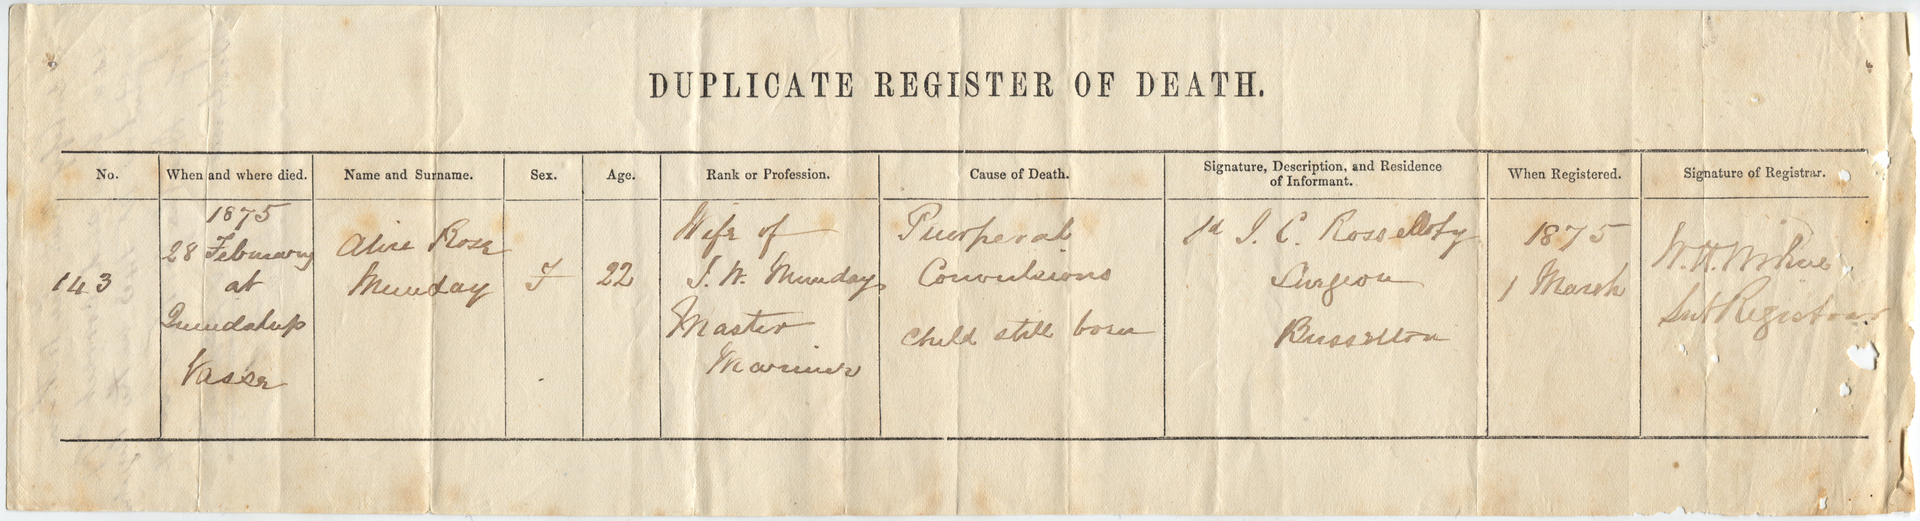 DUPLICATE REGISTER OF DEATH.
No.
When and where died.
Name and Surname.
Sex.
Age.
Rank or Profession.
Cause of Death.
Signature, Description, and Residence
of Informant.
When Registered.
Signature of Registrar.
143
1875
28 February
at
Quindalup
Vasse
Alice Rose
Munday
F
22
Wife of
J. W. Munday
Master
Mariner
Puerperal
Convulsions
child still born
J. C. Rosselloty
Surgeon
Busselton
1875
1 March
W. H.
Sub Registrar